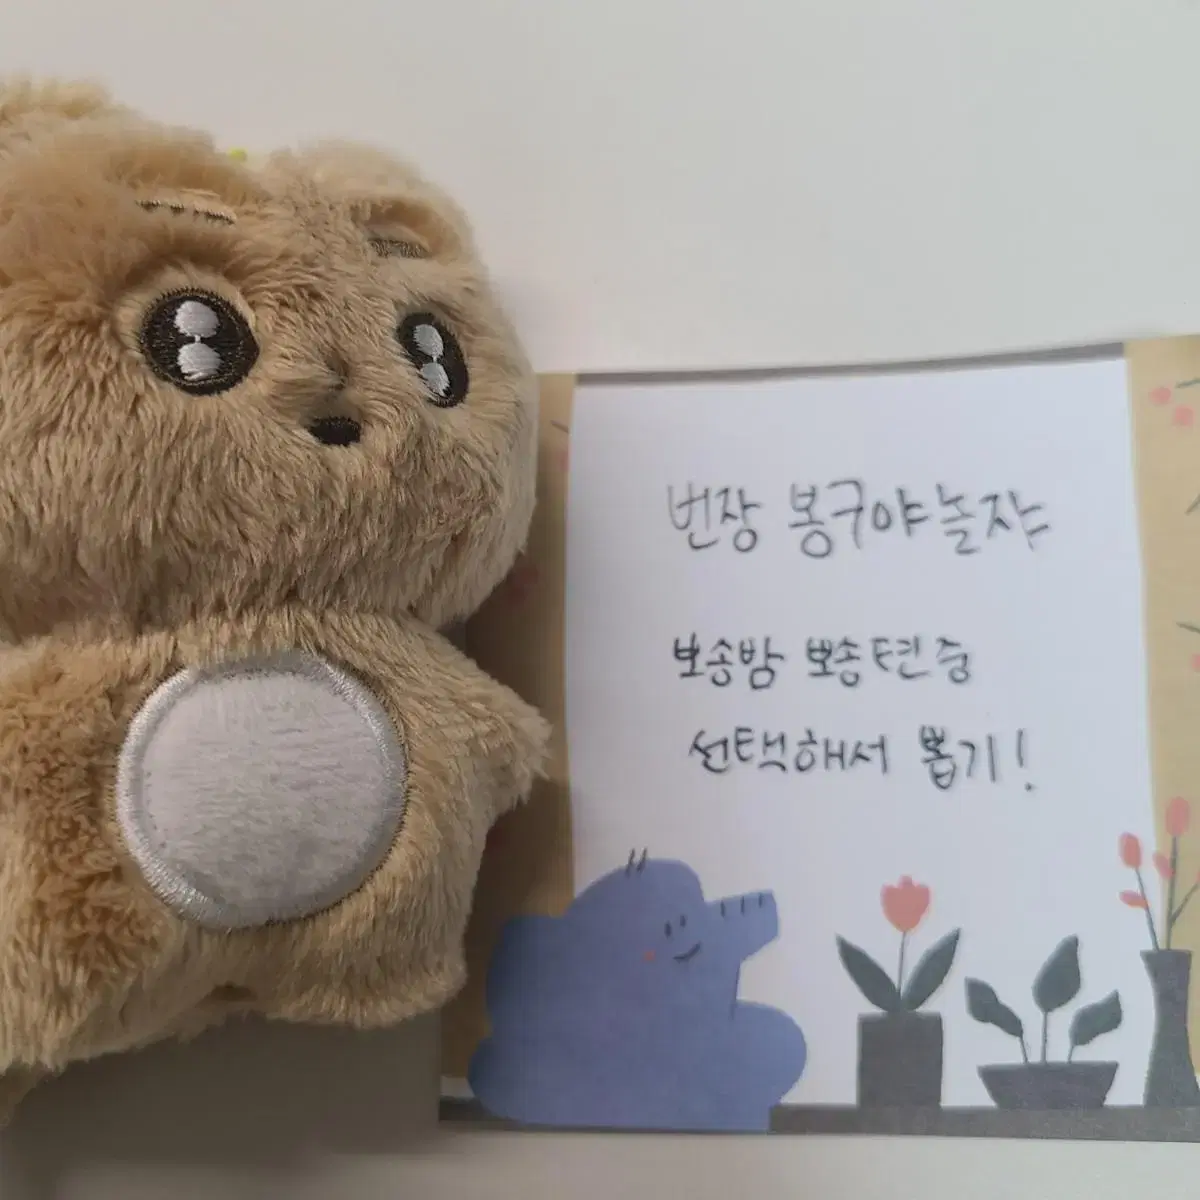 번장 봉구야놀쟈
보송밤 뽀송텬중
선택해서 뽑기!